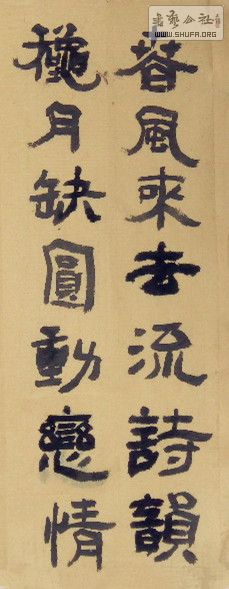 書藝公社
WWW.SHUFA.ORG
春風來去流詩韻
穐月缺圓動戀情